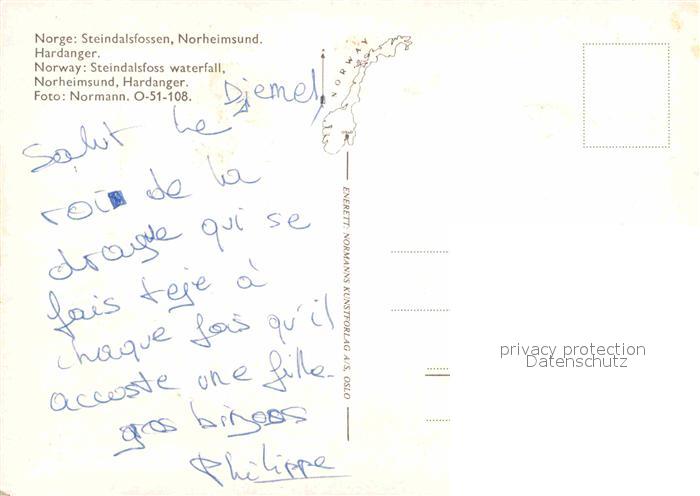 Norge: Steindalsfossen, Norheimsund.
Hardanger.
Norway: Steindalsfoss waterfall,
Norheimsund, Hardanger.
Foto: Normann. O-51-108.
NORWAY
Salut le Djemel,
roi de la
drague qui se
fais teje à
chaque fois qu'il
accoste une fille.
gros bizoos
Philippe
ENERETT: NORMANNS KUNSTFORLAG A/S, OSLO
privacy protection
Datenschutz